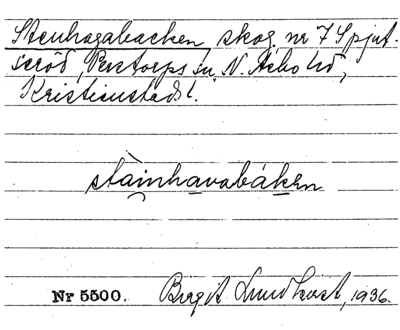 Stenhagabacken skog nr 7 Spjut-
seröd, Perstorps sn. N. Åsbo hd,
Kristianstads l.
stàinhavabáken
Nr 5500. Birgit Lundkvist, 1936.